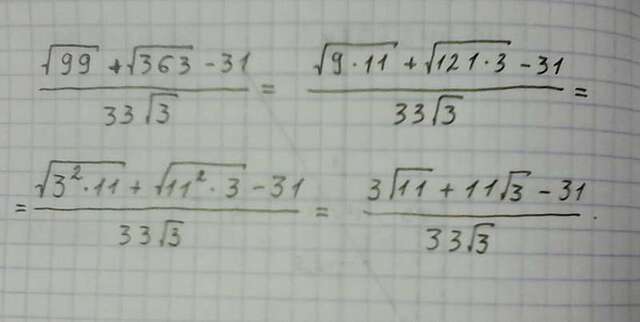 (√99 + √363 - 31) / (33√3) = (√(9·11) + √(121·3) - 31) / (33√3) =
= (√(3²·11) + √(11²·3) - 31) / (33√3) = (3√11 + 11√3 - 31) / (33√3).